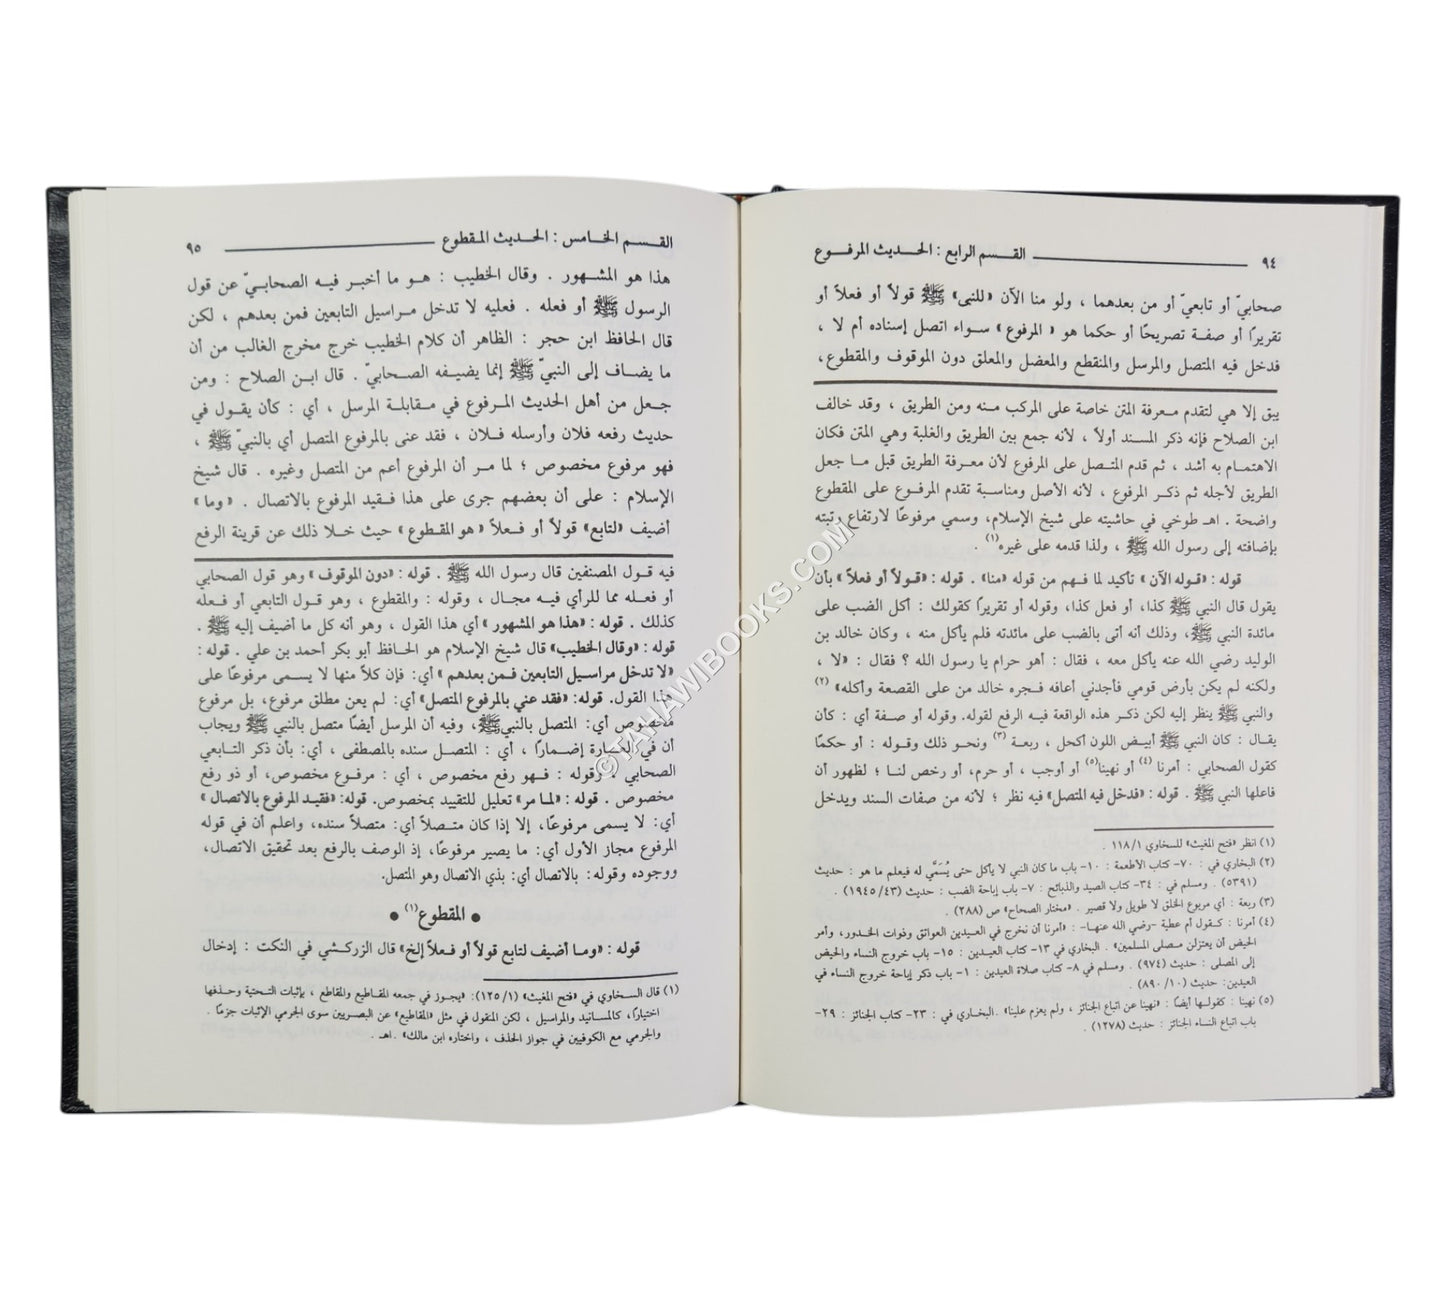 ٩٤ القسم الرابع : الحديث المرفوع
صحابيّ أو تابعيّ أو من بعدهما ، ولو منا الآن «للنبى» ﷺ قولاً أو فعلاً أو
تقريرًا أو صفة تصريحًا أو حكما هو « المرفوع » سواء اتصل إسناده أم لا ،
فدخل فيه المتصل والمرسل والمنقطع والمعضل والمعلق دون الموقوف والمقطوع،
يبق إلا هي لتقدم معرفة المتن خاصة على المركب منه ومن الطريق ، وقد خالف
ابن الصلاح فإنه ذكر المسند أولاً ، لأنه جمع بين الطريق والغلبة وهي المتن فكان
الاهتمام به أشد ، ثم قدم المتصل على المرفوع لأن معرفة الطريق قبل ما جعل
الطريق لأجله ثم ذكر المرفوع ، لأنه الأصل ومناسبة تقدم المرفوع على المقطوع
واضحة . اهـ طوخي في حاشيته على شيخ الإسلام، وسمي مرفوعًا لارتفاع رتبته
بإضافته إلى رسول الله ﷺ ، ولذا قدمه على غيره(١) .
قوله : «قوله الآن» تأكيد لما فهم من قوله «منا» . قوله : «قولاً أو فعلاً» بأن
يقول قال النبي ﷺ كذا، أو فعل كذا، وقوله أو تقريرًا كقولك : أكل الضب على
مائدة النبي ﷺ، وذلك أنه أتى بالضب على مائدته فلم يأكل منه ، وكان خالد بن
الوليد رضي الله عنه يأكل معه ، فقال : أهو حرام يا رسول الله ؟ فقال : «لا ،
ولكنه لم يكن بأرض قومي فأجدني أعافه فجره خالد من على القصعة وأكله» (٢)
والنبي ﷺ ينظر إليه لكن ذكر هذه الواقعة فيه الرفع لقوله. وقوله أو صفة أي : كأن
يقال : كان النبي ﷺ أبيض اللون أكحل ، ربعة (٣) ونحو ذلك وقوله : أو حكمًا
كقول الصحابي : أمرنا (٤) أو نهينا(٥) أو أوجب ، أو حرم، أو رخص لنا ؛ لظهور أن
فاعلها النبي ﷺ . قوله : «فدخل فيه المتصل» فيه نظر ؛ لأنه من صفات السند ويدخل
(١) انظر «فتح المغيث» للسخاوي ١١٨/١ .
(٢) البخاري في : ٧٠- كتاب الأطعمة : ١٠- باب ما كان النبي لا يأكل حتى يُسَمَّى له فيعلم ما هو : حديث
(٥٣٩١) . ومسلم في : ٣٤- كتاب الصيد والذبائح : ٧- باب إباحة الضب : حديث (١٩٤٥/٤٣) .
(٣) ربعة : أي مربوع الخلق لا طويل ولا قصير . «مختار الصحاح» ص (٢٨٨) .
(٤) أمرنا : كقول أم عطية -رضي الله عنها- : «أمرنا أن نخرج في العيدين العواتق وذوات الخدور، وأمر
الحيض أن يعتزلن مصلى المسلمين» . البخاري في ١٣- كتاب العيدين : ١٥- باب خروج النساء والحيض
إلى المصلى : حديث (٩٧٤) . ومسلم في ٨- كتاب صلاة العيدين : ١- باب ذكر إباحة خروج النساء في
العيدين: حديث (٨٩٠/١٠) .
(٥) نهينا : كقولها أيضًا : «نهينا عن اتباع الجنائز ، ولم يعزم علينا» .البخاري في : ٢٣- كتاب الجنائز : ٢٩-
باب اتباع النساء الجنائز : حديث (١٢٧٨) .
القسم الخامس : الحديث المقطوع ٩٥
هذا هو المشهور . وقال الخطيب : هو ما أخبر فيه الصحابيّ عن قول
الرسول ﷺ أو فعله . فعليه لا تدخل مراسيل التابعين فمن بعدهم ، لكن
قال الحافظ ابن حجر : الظاهر أن كلام الخطيب خرج مخرج الغالب من أن
ما يضاف إلى النبيّ ﷺ إنما يضيفه الصحابيّ . قال ابن الصلاح : ومن
جعل من أهل الحديث المرفوع في مقابلة المرسل ، أي : كأن يقول في
حديث رفعه فلان وأرسله فلان ، فقد عنى بالمرفوع المتصل أي بالنبيّ ﷺ ،
فهو مرفوع مخصوص ؛ لما مر أن المرفوع أعم من المتصل وغيره . قال شيخ
الإسلام : على أن بعضهم جرى على هذا فقيد المرفوع بالاتصال . «وما»
أضيف «لتابع» قولاً أو فعلاً «هو المقطوع» حيث خلا ذلك عن قرينة الرفع
فيه قول المصنفين قال رسول الله ﷺ . قوله : «دون الموقوف» وهو قول الصحابي
أو فعله مما للرأي فيه مجال ، وقوله : والمقطوع ، وهو قول التابعي أو فعله
كذلك . قوله : «هذا هو المشهور» أي هذا القول ، وهو أنه كل ما أضيف إليه ﷺ .
قوله : «وقال الخطيب» قال شيخ الإسلام هو الحافظ أبو بكر أحمد بن علي . قوله :
«لا تدخل مراسيل التابعين فمن بعدهم» أي: فإن كلاً منها لا يسمى مرفوعًا على
هذا القول. قوله: «فقد عني بالمرفوع المتصل» أي: لم يعن مطلق مرفوع، بل مرفوع
مخصوص أي: المتصل بالنبيﷺ، وفيه أن المرسل أيضًا متصل بالنبي ﷺ ويجاب
أن في العبارة إضمارًا ، أي : المتصل سنده بالمصطفى ، أي: بأن ذكر التابعي
الصحابي . وقوله : فهو رفع مخصوص ، أي : مرفوع مخصوص، أو ذو رفع
مخصوص . قوله : «لما مر» تعليل للتقييد بمخصوص. قوله: «فقيد المرفوع بالاتصال»
أي: لا يسمى مرفوعًا، إلا إذا كان متصلاً أي: متصلاً سنده، واعلم أن في قوله
المرفوع مجاز الأول أي: ما يصير مرفوعًا، إذ الوصف بالرفع بعد تحقيق الاتصال،
ووجوده وقوله: بالاتصال أي: بذي الاتصال وهو المتصل.
• المقطوع(١) •
قوله : «وما أضيف لتابع قولاً أو فعلاً إلخ» قال الزركشي في النكت : إدخال
(١) قال السخاوي في «فتح المغيث» (١٢٥/١): «يجوز في جمعه المقاطيع والمقاطع ، بإثبات التحتية وحذفها
اختيارًا، كالمسانيد والمراسيل ، لكن المنقول في مثل «المقاطيع» عن البصريين سوى الجرمي الإثبات جزمًا .
والجرمي مع الكوفيين في جواز الحذف ، واختاره ابن مالك» . اهـ .
©TAHAWIBOOKS.COM